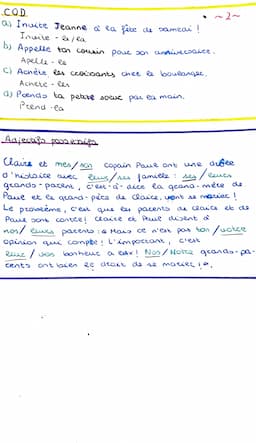 COD
~2~
a) Invite Jeanne à la fête de samedi !
Invite - la/la
b) Appelle ton cousin pour son anniversaire.
Apelle - le
c) Achète les croissants chez le boulanger.
Achète - les
d) Prends ta petite sœur par la main.
Prend - la
Adjectifs possessifs
Claire et mes/son copain Paul ont une drôle
d'histoire avec leur/ses famille : ses/leurs
grands-parent, c'est-à-dire la grand-mère de
Paul et le grand-père de Claire, vont se marier !
Le problème, c'est que les parents de Claire et de
Paul sont contre! Claire et Paul disent à
nos/leurs parents : « Mais ce n'est pas ton/votre
opinion qui compte ! L'important, c'est
leur/vos bonheur à eux! Nos/Notre grands-pa-
rents ont bien le droit de se marier ! ».